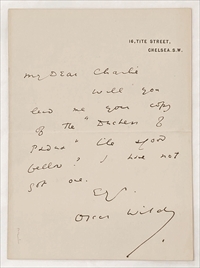 16, TITE STREET,
CHELSEA. S.W.
My Dear Charlie
Will you
lend me your copy
of the "Duchess of
Padua" like a good
fellow? I have not
got one.
Oscar Wilde